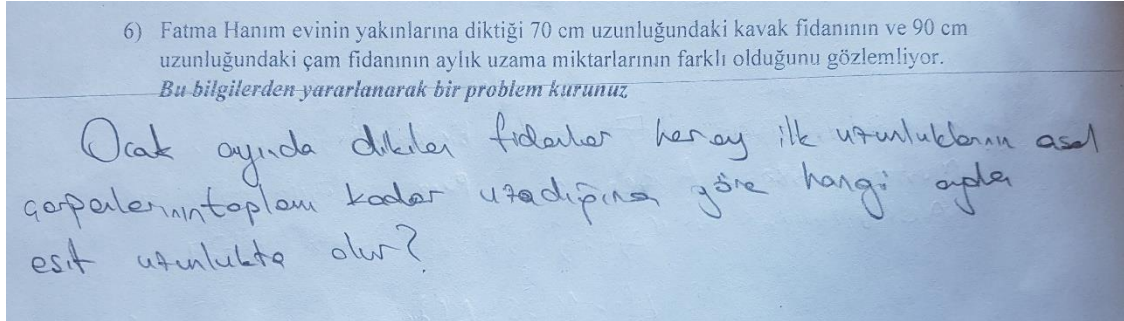 6) Fatma Hanım evinin yakınlarına diktiği 70 cm uzunluğundaki kavak fidanının ve 90 cm
uzunluğundaki çam fidanının aylık uzama miktarlarının farklı olduğunu gözlemliyor.
Bu bilgilerden yararlanarak bir problem kurunuz
Ocak ayında dikilen fidanlar her ay ilk uzunluklarının asal
çarpanlarının toplamı kadar uzadığına göre hangi ayda
eşit uzunlukta olur?